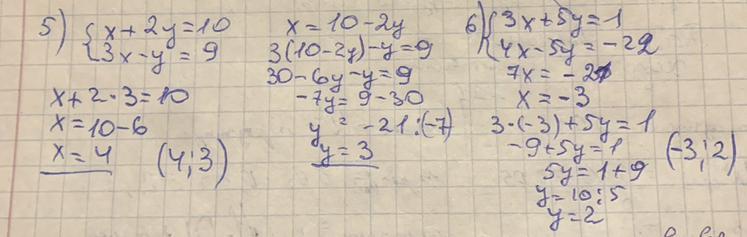 5) { x + 2y = 10
3x - y = 9
x + 2 · 3 = 10
x = 10 - 6
x = 4 (4; 3)
x = 10 - 2y
3(10 - 2y) - y = 9
30 - 6y - y = 9
-7y = 9 - 30
y = -21 : (-7)
y = 3
6) { 3x + 5y = 1
4x - 5y = -22
7x = -21
x = -3
3 · (-3) + 5y = 1
-9 + 5y = 1 (-3; 2)
5y = 1 + 9
y = 10 : 5
y = 2